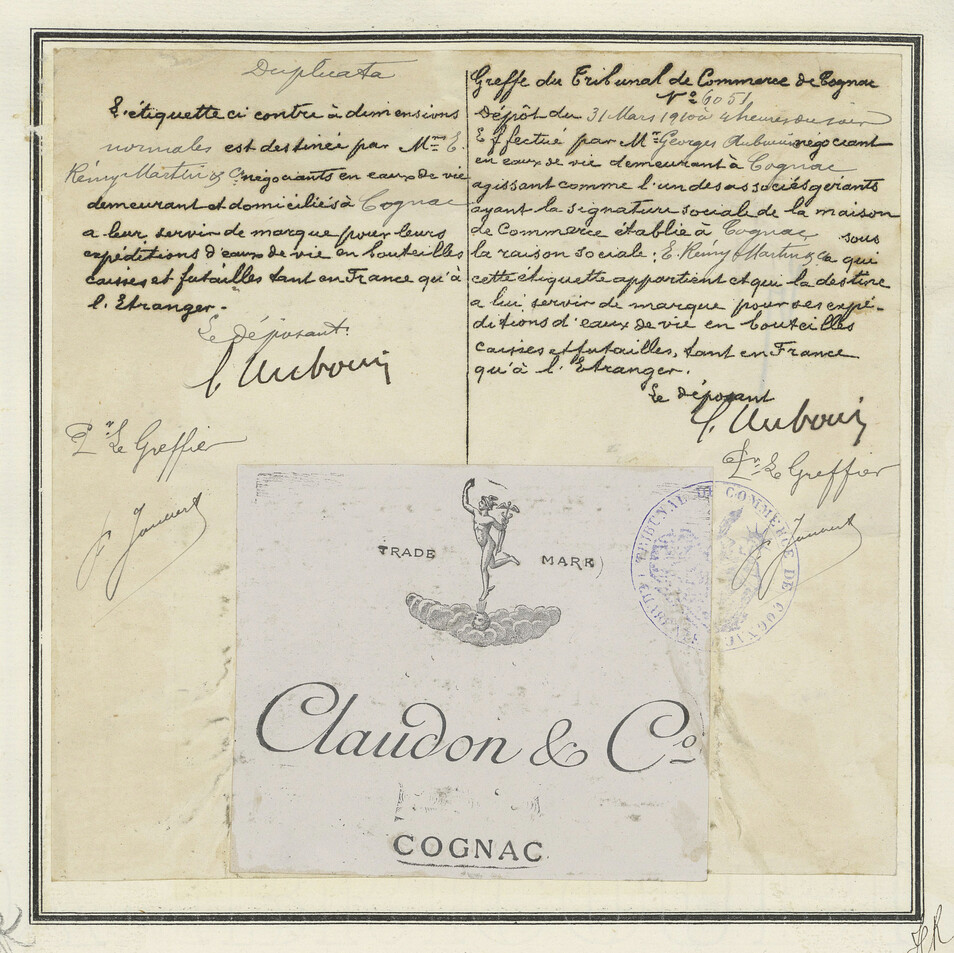 Duplicata
L'étiquette ci contre à dimensions
normales est destinée par Mrs E.
Rémy Martin & Co négociants en eaux de vie
demeurant et domiciliés à Cognac
a leur servir de marque pour leurs
expéditions d'eaux de vie en bouteilles
caisses et futailles tant en France qu'à
l'Etranger.
Le déposant
G. Aubouin
Pr Le Greffier
Greffe du Tribunal de Commerce de Cognac
No 6051
Dépôt du 31 Mars 1910 à 4 heures du soir
Effectué par Mr Georges Aubouin négociant
en eaux de vie demeurant à Cognac
agissant comme l'un des associés gérants
ayant la signature sociale de la maison
de Commerce établie à Cognac sous
la raison sociale : E. Rémy Martin & Co qui
cette étiquette appartient et qui la destine
a lui servir de marque pour ses expé-
ditions d'eaux de vie en bouteilles
caisses et futailles, tant en France
qu'à l'Etranger.
Le déposant
G. Aubouin
Pr Le Greffier
TRADE MARK
TRIBUNAL DE COMMERCE DE COGNAC
Claudon & Co
COGNAC